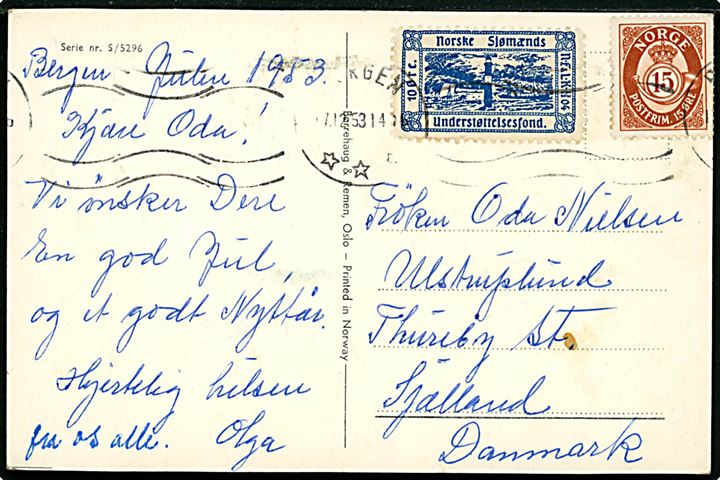 Serie nr. S/5296
Bergen Julen 1953.
Kjære Oda!
Vi ønsker Dere
En god Jul,
og et godt Nyttår.
Hjertelig hilsen
fra os alle. Olga
Berrehaug & Remen, Oslo – Printed in Norway
Norske Sjømænds
10 Øre.
Understøttelsesfond.
NORGE
15
POSTFRIM. 15 ØRE
RGEN
53 14
Fröken Oda Nielsen
Ulstruplund
Thureby St.
Sjælland
Danmark